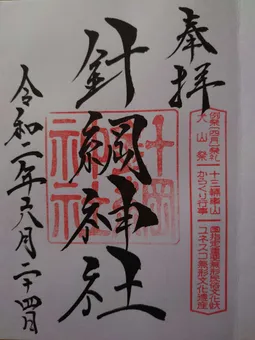 奉拝
例祭(四月)祭礼
犬山祭
十三輌車山
からくり行事
国指定重要無形民俗文化財
ユネスコ無形文化遺産
針綱神社
針綱神社
令和二年六月二十四日